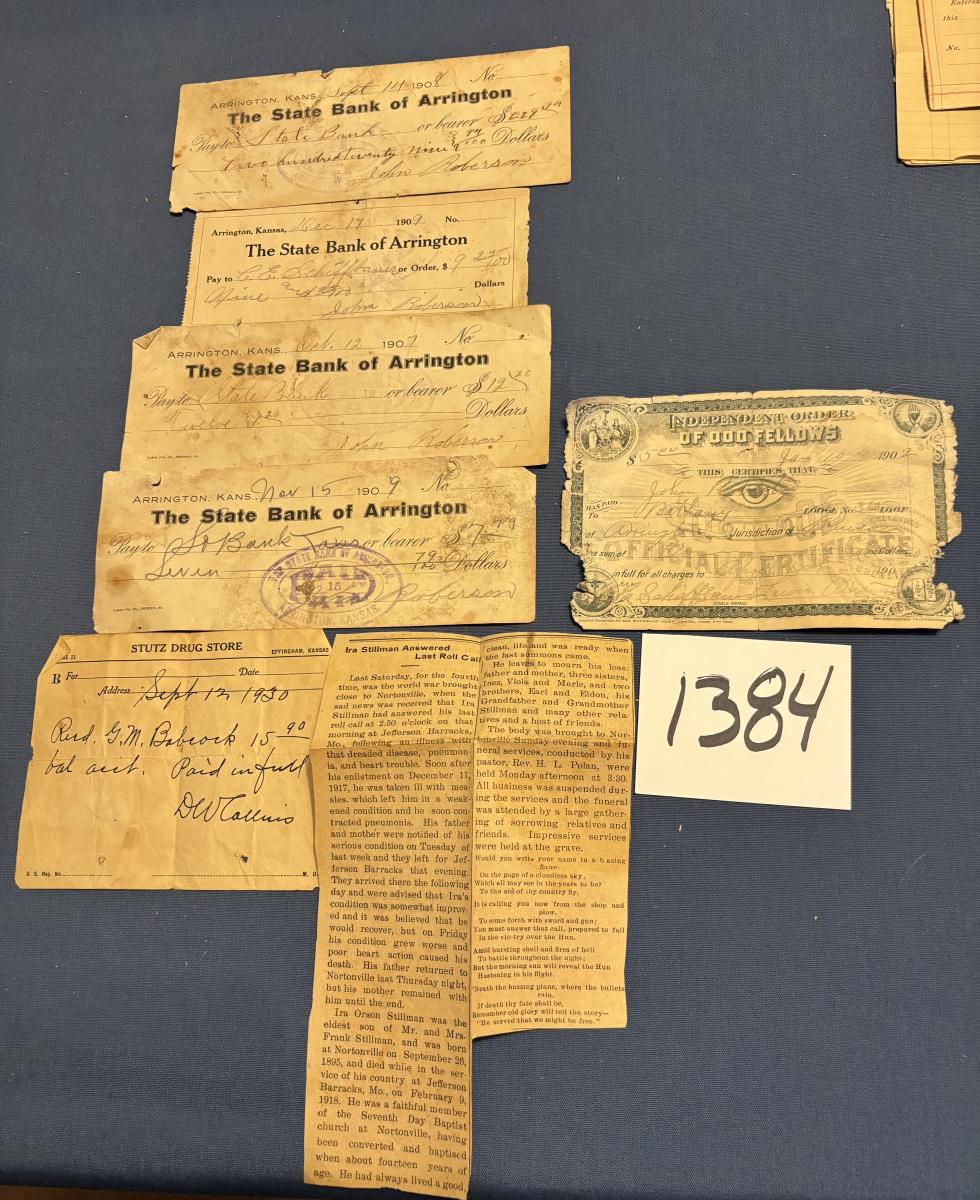 ARRINGTON, KANS., Sept 14 1908 No.
The State Bank of Arrington
Pay to State Bank or bearer $229
Two hundred twenty nine Dollars
John Roberson
Arrington, Kansas, Dec 17 1909 No.
The State Bank of Arrington
Pay to C. E. Schiffbauer or Order, $9 25/100
Nine and Dollars
John Roberson
ARRINGTON, KANS., Oct. 12 1907 No.
The State Bank of Arrington
Pay to State Bank or bearer $12 20
Twelve & 20 Dollars
John Roberson
ARRINGTON, KANS., Nov 15 1909 No.
The State Bank of Arrington
Pay to St Bank or bearer $7.79
Seven 79/100 Dollars
Roberson
THE STATE BANK OF ARRINGTON
PAID
ARRINGTON, KANSAS.
INDEPENDENT ORDER
OF ODD FELLOWS
$5.00 Jan 1902
THIS CERTIFIES THAT
John
HAS PAID
To Bethany LODGE No. IOOF
of Jurisdiction of
the sum of Dollars
in full for all charges to
OFFICIAL CERTIFICATE
NOBLE GRAND
STUTZ DRUG STORE EFFINGHAM, KANSAS
R For Date
Address Sept 12 1930
Recd. G. M. Babcock 15 90
bal acct. Paid in full
D W Collins
U. S. Reg. No. M. D.
Ira Stillman Answered
Last Roll Call
Last Saturday, for the fourth
time, was the world war brought
close to Nortonville, when the
sad news was received that Ira
Stillman had answered his last
roll call at 2:50 o'clock on that
morning at Jefferson Barracks,
Mo., following an illness with
that dreaded disease, pneumon-
ia, and heart trouble. Soon after
his enlistment on December 11,
1917, he was taken ill with mea-
sles, which left him in a weak-
ened condition and he soon con-
tracted pneumonia. His father
and mother were notified of his
serious condition on Tuesday of
last week and they left for Jef-
ferson Barracks that evening.
They arrived there the following
day and were advised that Ira's
condition was somewhat improv-
ed and it was believed that he
would recover, but on Friday
his condition grew worse and
poor heart action caused his
death. His father returned to
Nortonville last Thursday night,
but his mother remained with
him until the end.
Ira Orson Stillman was the
eldest son of Mr. and Mrs.
Frank Stillman, and was born
at Nortonville on September 26,
1895, and died while in the ser-
vice of his country at Jefferson
Barracks, Mo., on February 9,
1918. He was a faithful member
of the Seventh Day Baptist
church at Nortonville, having
been converted and baptised
when about fourteen years of
age. He had always lived a good,
clean, life and was ready when
the last summons came.
He leaves to mourn his loss:
father and mother, three sisters,
Inez, Viola and Merle, and two
brothers, Earl and Eldon, his
Grandfather and Grandmother
Stillman and many other rela-
tives and a host of friends.
The body was brought to Nor-
tonville Sunday evening and fu-
neral services, conducted by his
pastor, Rev. H. L. Polan, were
held Monday afternoon at 3:30.
All business was suspended dur-
ing the services and the funeral
was attended by a large gather-
ing of sorrowing relatives and
friends. Impressive services
were held at the grave.
Would you write your name in a b azing
flame
On the page of a cloudless sky,
Which all may see in the years to be?
To the aid of thy country fly.
It is calling you now from the shop and
plow,
To come forth with sword and gun;
You must answer that call, prepared to fall
In the vic-try over the Hun.
Amid bursting shell and fires of hell
To battle throughout the night;
But the morning sun will reveal the Hun
Hastening in his flight.
'Neath the buzzing plane, where the bullets
rain,
If death thy fate shall be,
Remember old glory will tell the story—
"He served that we might be free."
1384
Entered
this
No.